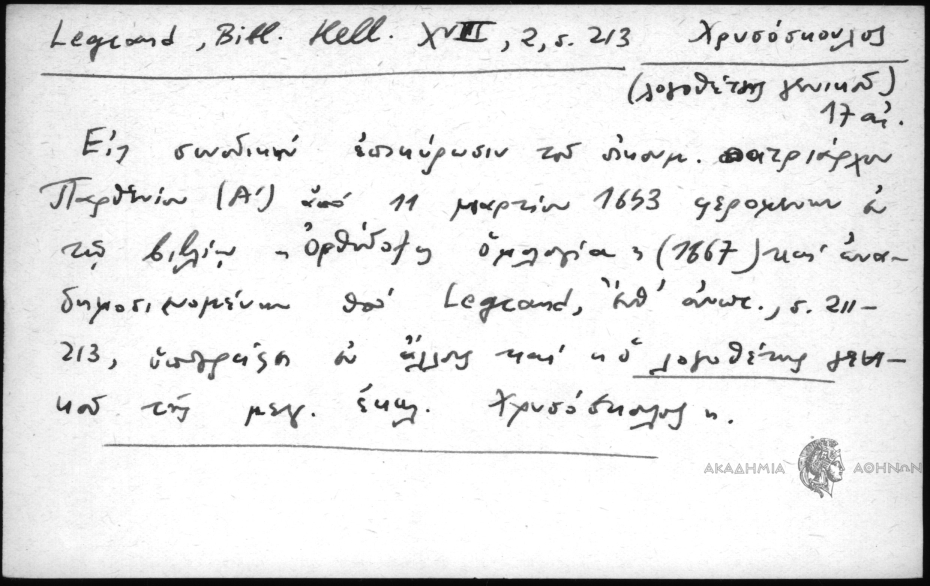 Legrand, Bibl. Hell. XVIII, 2, σ. 213 Χρυσόσκουλος
(λογοθέτης γενικοῦ)
17 αἰ.
Εἰς συνοδικὴν ἐπικύρωσιν τοῦ οἰκουμ. πατριάρχου
Παρθενίου (Α΄) ἀπό 11 μαρτίου 1643 φερομένην ἐν
τῷ βιβλίῳ "Ὀρθόδοξος ὁμολογία" (1667) καί ἀνα-
δημοσιευομένην ὑπό Legrand, ἔνθ' ἀνωτ., σ. 211-
213, ὑπογράφει ἐν ἄλλοις καί "ὁ λογοθέτης γενι-
κοῦ τῆς μεγ. ἐκκλ. Χρυσόσκουλος".
ΑΚΑΔΗΜΙΑ ΑΘΗΝΩΝ